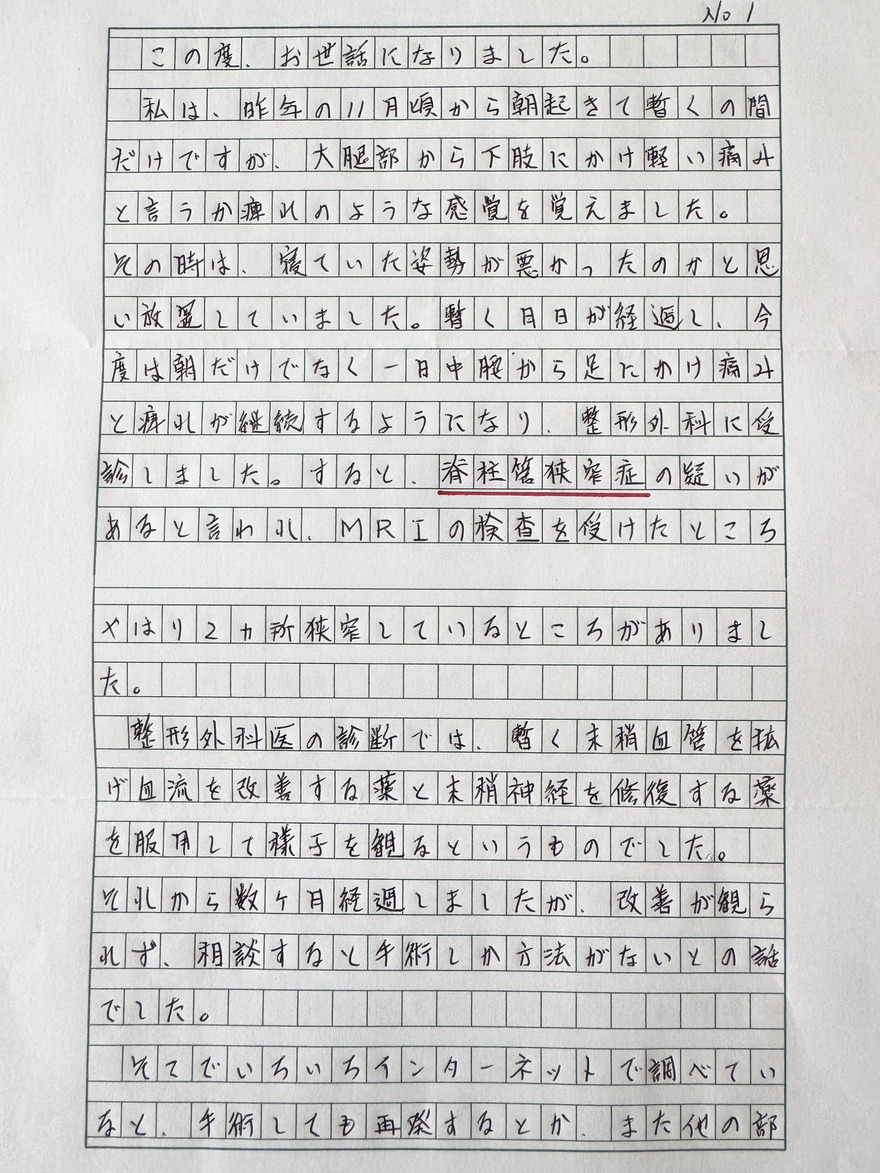 No 1
この度、お世話になりました。
私は、昨年の11月頃から朝起きて暫くの間
だけですが、大腿部から下肢にかけ軽い痛み
と言うか痺れのような感覚を覚えました。
その時は、寝ていた姿勢が悪かったのかと思
い放置していました。暫く月日が経過し、今
度は朝だけでなく一日中腰から足にかけ痛み
と痺れが継続するようになり、整形外科に受
診しました。すると、脊柱管狭窄症の疑いが
あると言われ、MRIの検査を受けたところ
やはり2ヵ所狭窄しているところがありまし
た。
整形外科医の診断では、暫く末梢血管を拡
げ血流を改善する薬と末梢神経を修復する薬
を服用して様子を観るというものでした。
それから数ヶ月経過しましたが、改善が観ら
れず、相談すると手術しか方法がないとの話
でした。
そこでいろいろインターネットで調べてい
ると、手術しても再発するとか、また他の部